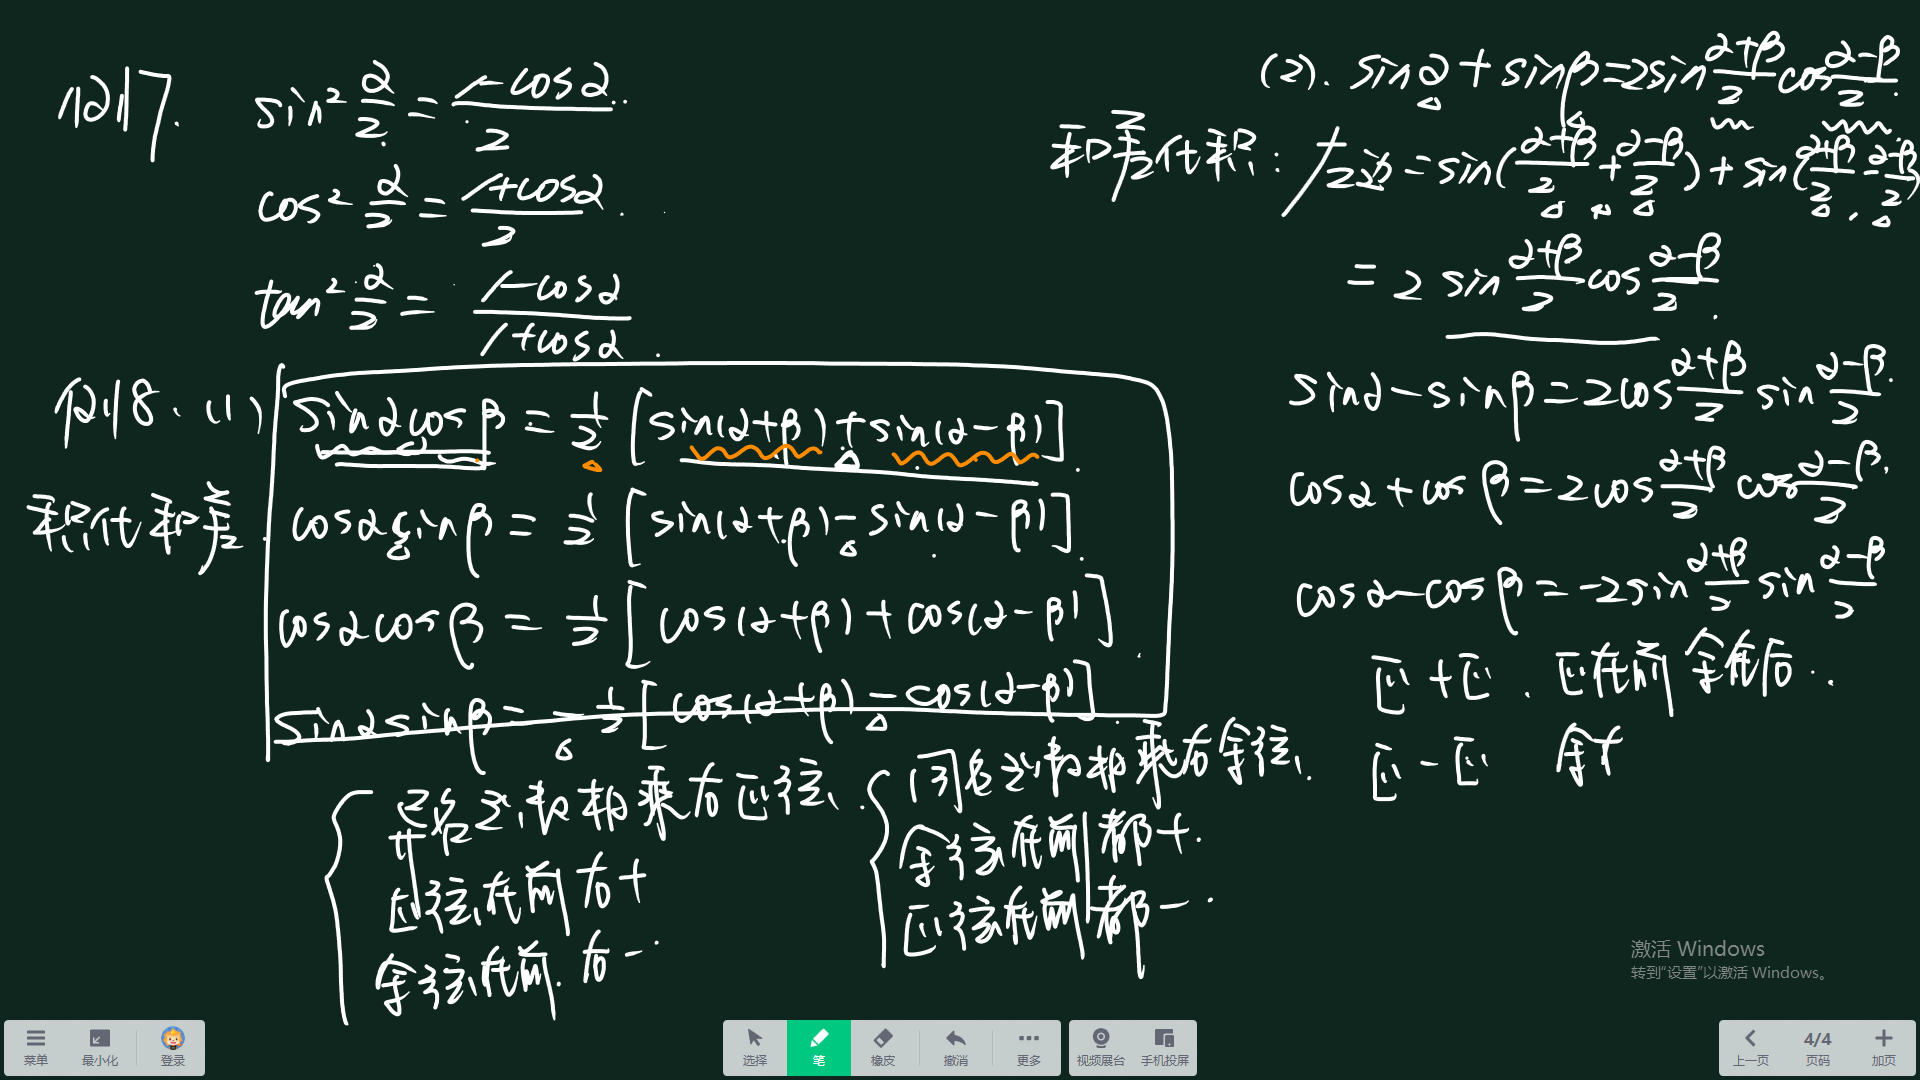 例7. sin² α/2 = (1-cosα)/2.
cos² α/2 = (1+cosα)/2.
tan² α/2 = (1-cosα)/(1+cosα).
例8. (1) sinαcosβ = 1/2 [sin(α+β)+sin(α-β)].
积化和差. cosαsinβ = 1/2 [sin(α+β)-sin(α-β)].
cosαcosβ = 1/2 [cos(α+β)+cos(α-β)].
sinαsinβ = -1/2 [cos(α+β)-cos(α-β)].
异名之积相乘右正弦.
正弦在前右+
余弦在前.右-.
同名之积相乘右余弦.
余弦在前都+.
正弦在前都-.
(2). sinα+sinβ=2sin (α+β)/2 cos (α-β)/2.
和差化积: 左边=sin((α+β)/2+(α-β)/2)+sin((α+β)/2-(α-β)/2)
= 2 sin (α+β)/2 cos (α-β)/2.
sinα-sinβ=2cos (α+β)/2 sin (α-β)/2.
cosα+cosβ=2cos (α+β)/2 cos (α-β)/2.
cosα-cosβ=-2sin (α+β)/2 sin (α-β)/2
正+正. 正在前余在后.
正-正 余才
激活 Windows
转到“设置”以激活 Windows。
菜单 最小化 登录 选择 笔 橡皮 撤消 更多 视频展台 手机投屏 上一页 4/4 页码 加页